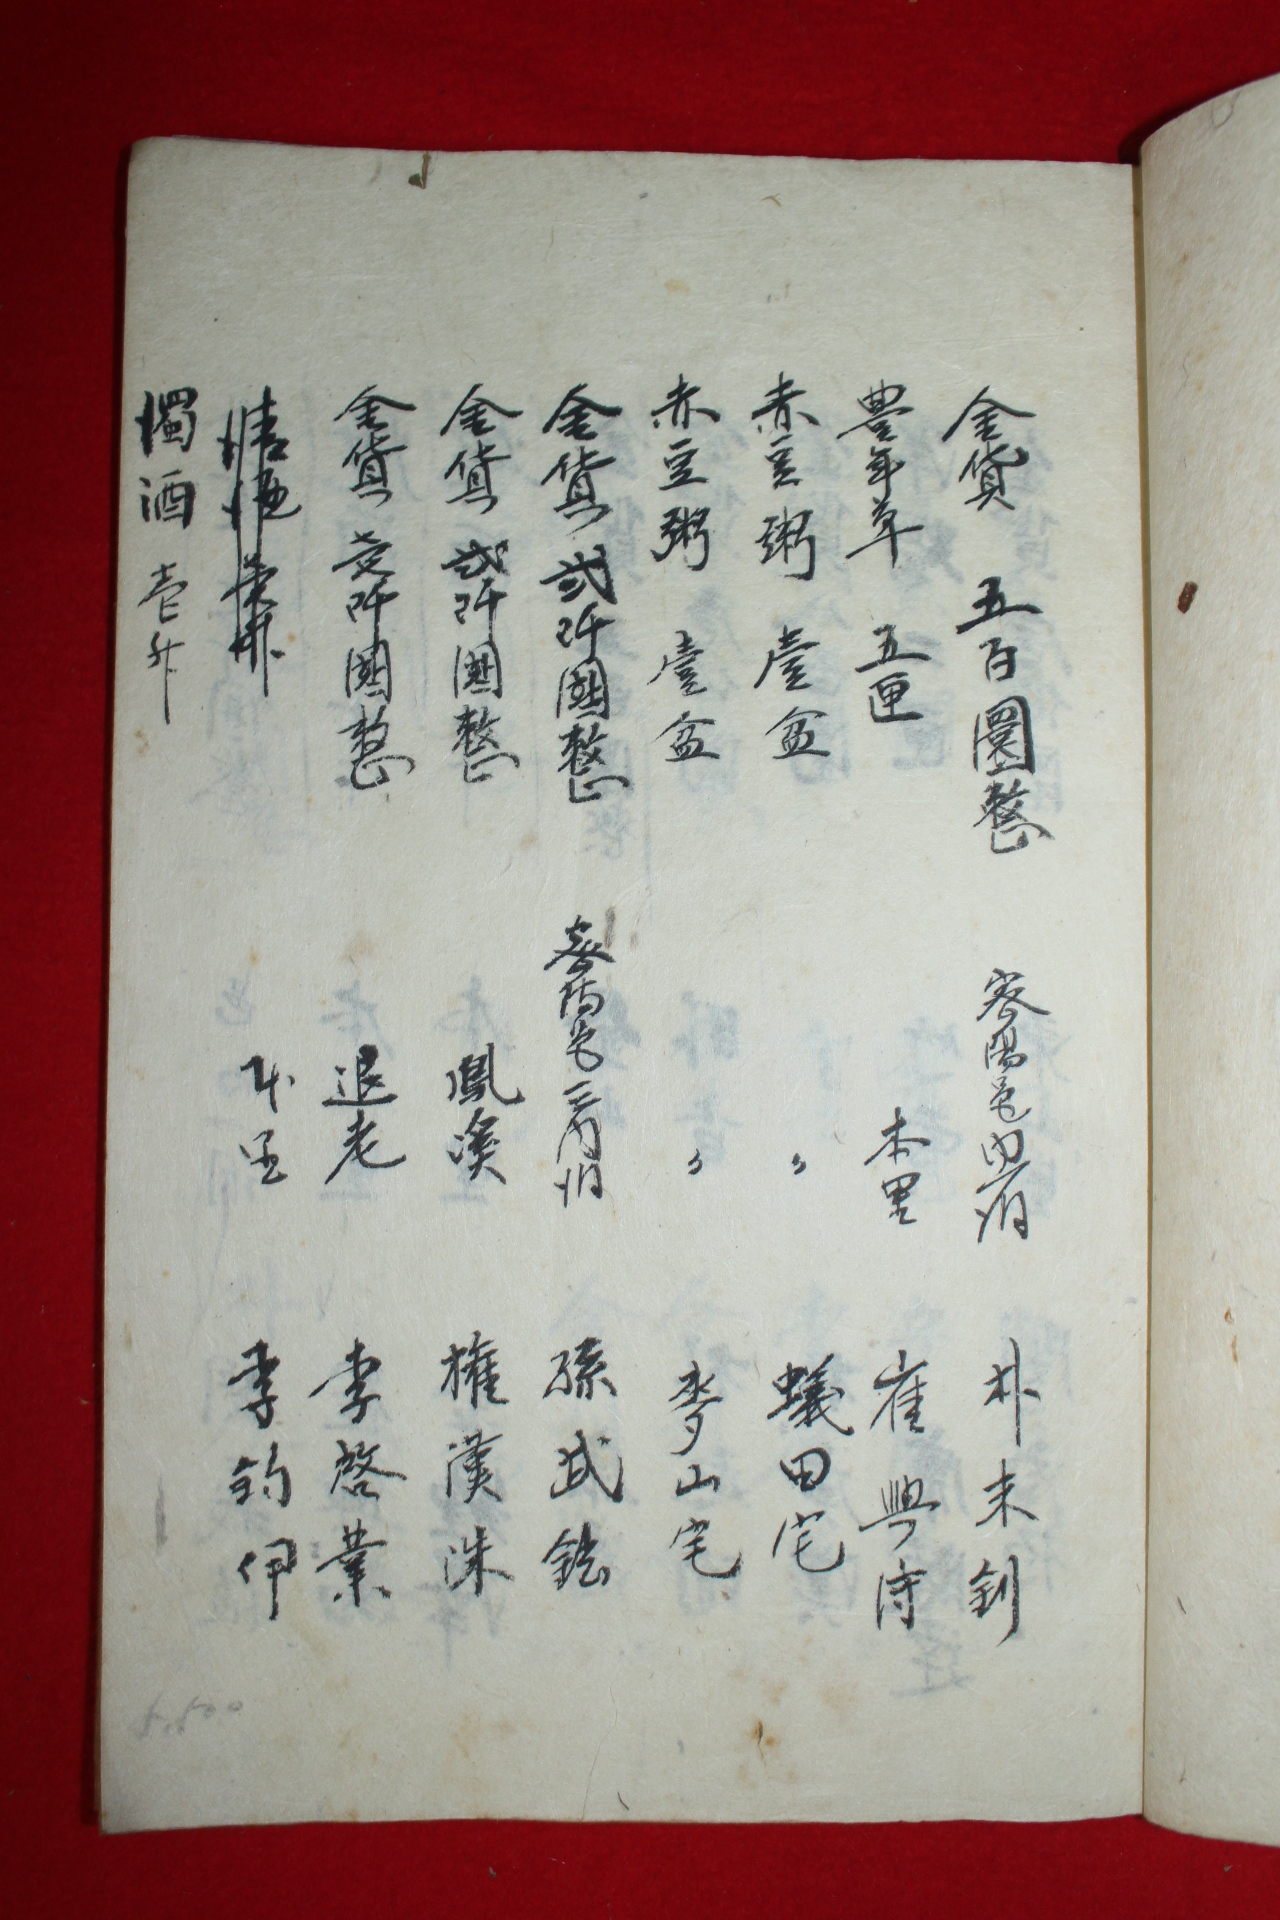 金貨 五百圜整 密陽邑內一洞 朴末釗
豊年草 五匣 本里 崔興守
赤豆粥 壹盆 〃 蟻田宅
赤豆粥 壹盆 〃 麥山宅
金貨 貳阡圜整 密陽邑三門洞 孫武鉉
金貨 貳阡圜整 鳳溪 權漢洙
金貨 壹阡圜整 退老 李啓業
本里 李鈞伊
濁酒 壹升